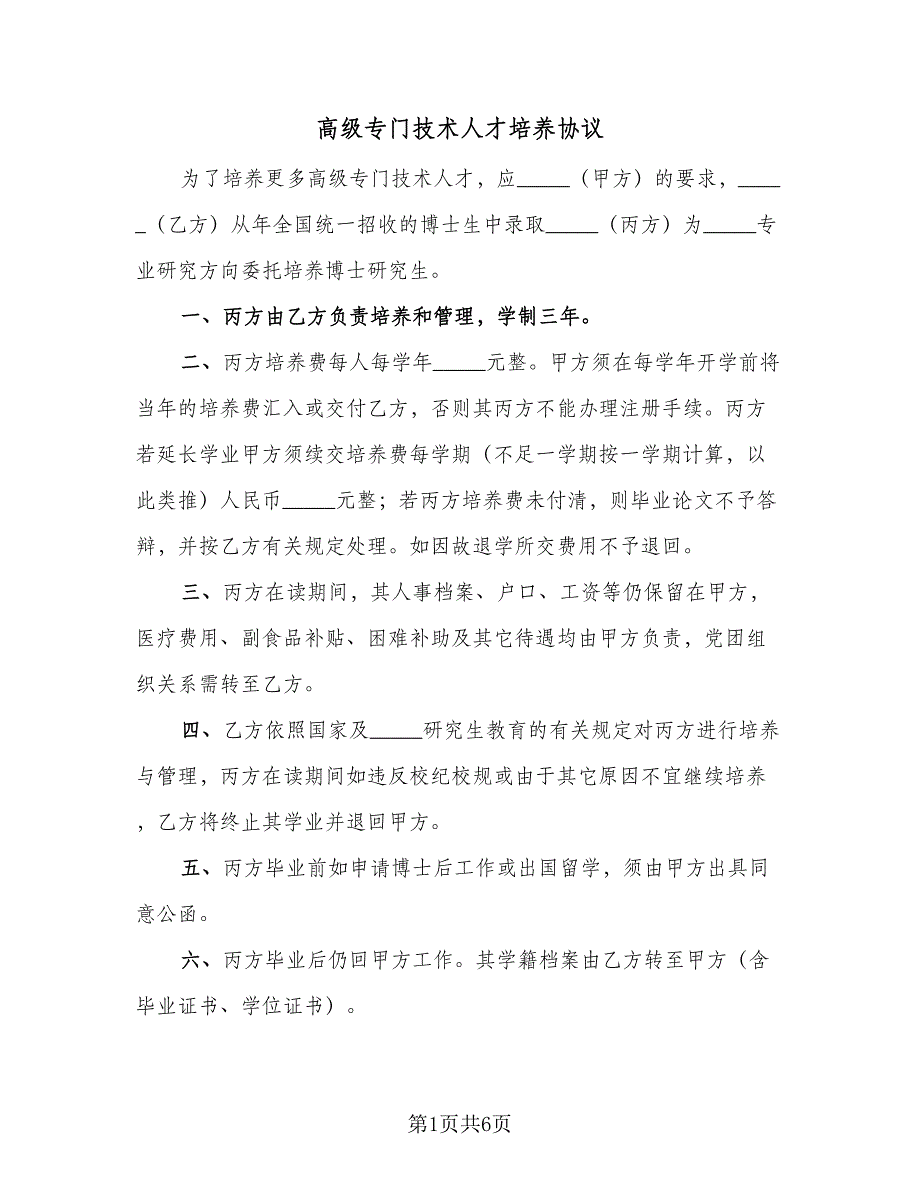 高级专门技术人才培养协议
为了培养更多高级专门技术人才，应_____（甲方）的要求，____
_（乙方）从年全国统一招收的博士生中录取_____（丙方）为_____专
业研究方向委托培养博士研究生。
一、丙方由乙方负责培养和管理，学制三年。
二、丙方培养费每人每学年_____元整。甲方须在每学年开学前将
当年的培养费汇入或交付乙方，否则其丙方不能办理注册手续。丙方
若延长学业甲方须续交培养费每学期（不足一学期按一学期计算，以
此类推）人民币_____元整；若丙方培养费未付清，则毕业论文不予答
辩，并按乙方有关规定处理。如因故退学所交费用不予退回。
三、丙方在读期间，其人事档案、户口、工资等仍保留在甲方，
医疗费用、副食品补贴、困难补助及其它待遇均由甲方负责，党团组
织关系需转至乙方。
四、乙方依照国家及_____研究生教育的有关规定对丙方进行培养
与管理，丙方在读期间如违反校纪校规或由于其它原因不宜继续培养
，乙方将终止其学业并退回甲方。
五、丙方毕业前如申请博士后工作或出国留学，须由甲方出具同
意公函。
六、丙方毕业后仍回甲方工作。其学籍档案由乙方转至甲方（含
毕业证书、学位证书）。
第1页共6页